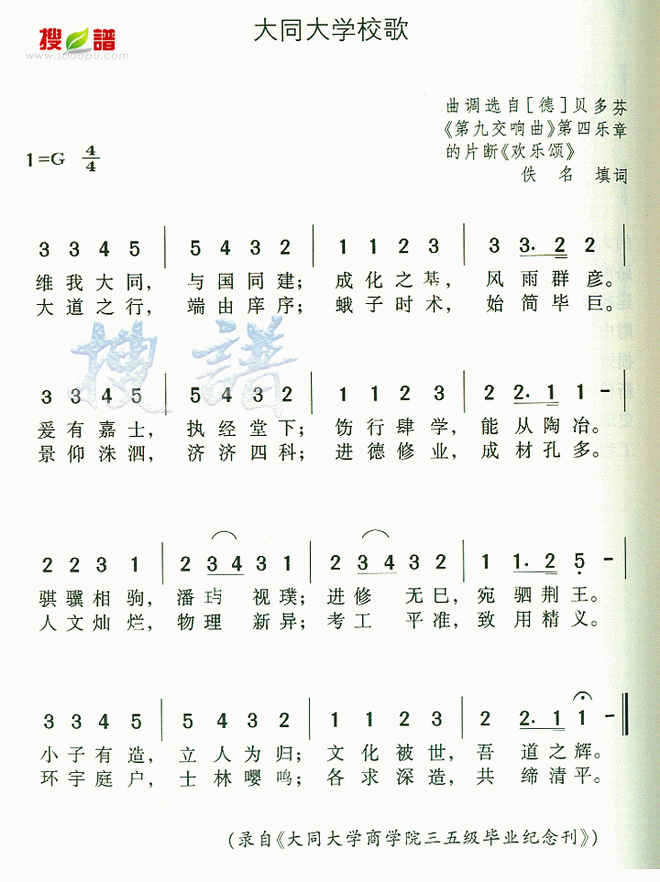 搜谱
www.sooopu.com
大同大学校歌
曲调选自[德]贝多芬
《第九交响曲》第四乐章
的片断《欢乐颂》
佚名 填词
1=G 4/4
3 3 4 5 | 5 4 3 2 | 1 1 2 3 | 3 3. 2 2 |
维我大同，与国同建；成化之基，风雨群彦。
大道之行，端由庠序；蛾子时术，始简毕巨。
搜谱
3 3 4 5 | 5 4 3 2 | 1 1 2 3 | 2 2. 1 1 - |
爰有嘉士，执经堂下；饬行肆学，能从陶冶。
景仰洙泗，济济四科；进德修业，成材孔多。
2 2 3 1 | 2 3 4 3 1 | 2 3 4 3 2 | 1 1. 2 5 - |
骐骥相驹，潘玙视璞；进修无已，宛驷荆王。
人文灿烂，物理新异；考工平准，致用精义。
3 3 4 5 | 5 4 3 2 | 1 1 2 3 | 2 2. 1 1 - ‖
小子有造，立人为归；文化被世，吾道之辉。
环宇庭户，士林嘤鸣；各求深造，共缔清平。
(录自《大同大学商学院三五级毕业纪念刊》)